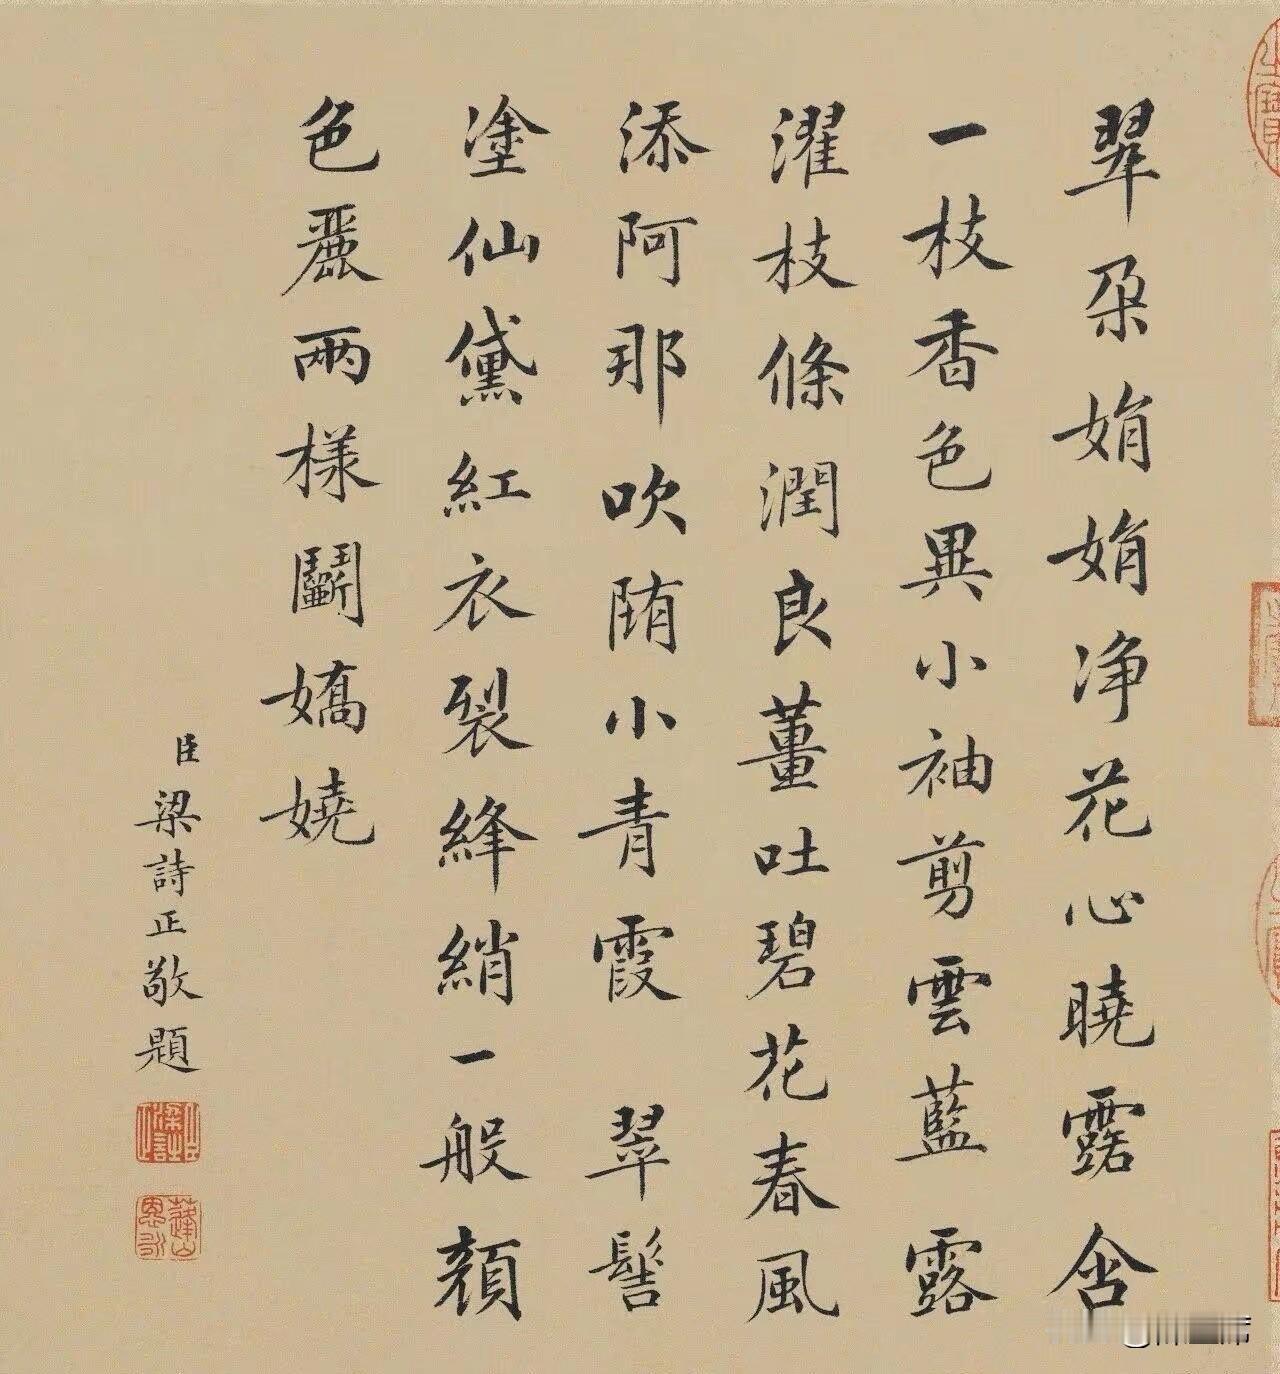 翠朵娟娟净花心曉露含
一枝香色異小袖剪雲藍　露
濯枝條潤良薑吐碧花春風
添阿那吹陏小青霞　翠髻
塗仙黛紅衣裂絳綃一般顏
色麗兩樣鬭嬌嬈
臣梁詩正敬題